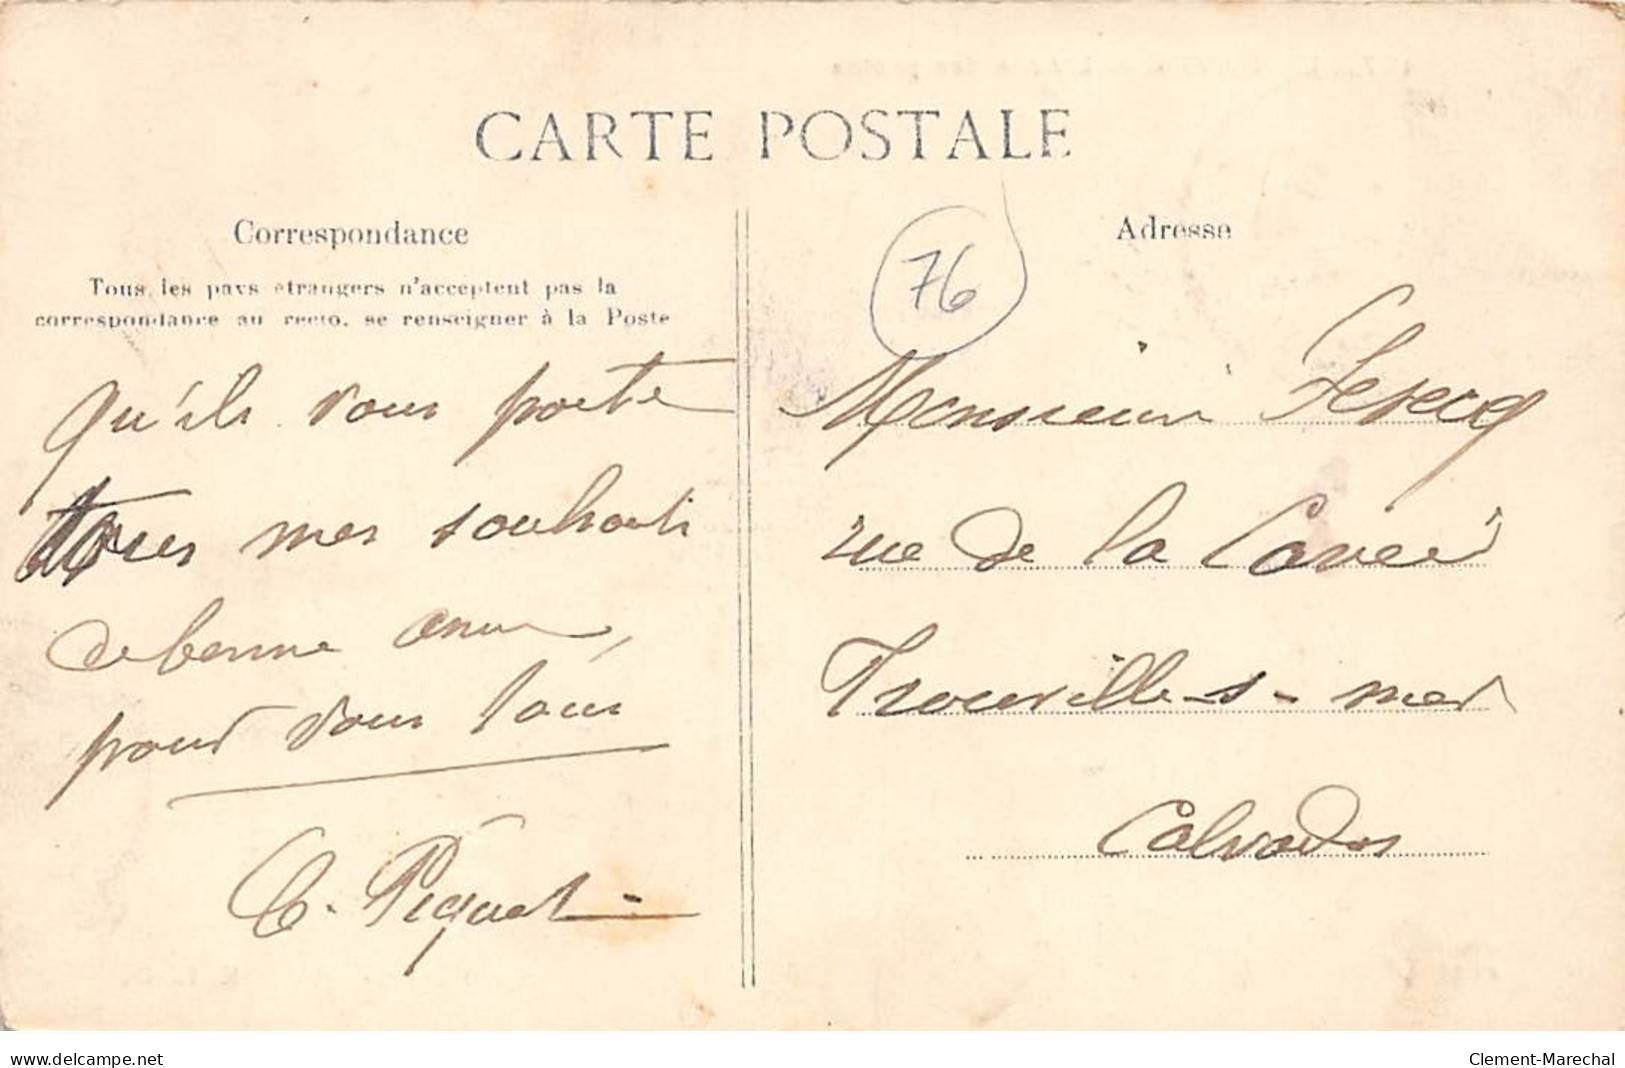 CARTE POSTALE
Correspondance
Tous les pays étrangers n'acceptent pas la
correspondance au recto, se renseigner à la Poste
Qu'ils vous porte
tous mes souhaits
de bonne année,
pour vous tous
Piquet
Adresse
76
Monsieur
rue de la Cavée
Trouville-s-mer
Calvados
www.delcampe.net
Clement-Marechal